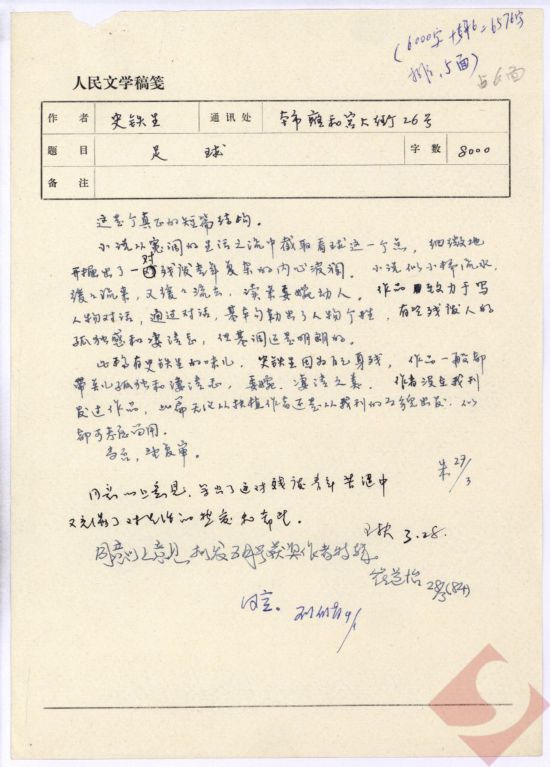 (6000字
排，5面)
占6面
人民文学稿笺
作者 史铁生 通讯处 本市雍和宫大街26号
题目 足球 字数 8000
备注
这是个真正的短篇结构。
小说从宽阔的生活之流中截取看球这一个点，细微地
开掘出了一对残废青年复杂的内心波澜。小说似小桥流水，
缓缓流来，又缓缓流去，读来委婉动人。作品致力于写
人物对话，通过对话，基本勾勒出了人物个性，有些残废人的
孤独感和凄凉感，但基调还是明朗的。
此稿有史铁生的味儿，史铁生因为自己身残，作品一般都
带点儿孤独和凄凉感，委婉、凄清之美。作者没在我刊
发过作品，此篇无论从扶植作者还是从我刊的角度出发，
都可考虑留用。
当否，请复审。
朱 27/3
同意以上意见，写出了这对残废青年苦闷中
又充满了对生活的热爱和希望。
王扶 3.28.
同意以上意见 拟发五月号获奖作者特辑
崔道怡 28/3(84)
同意。